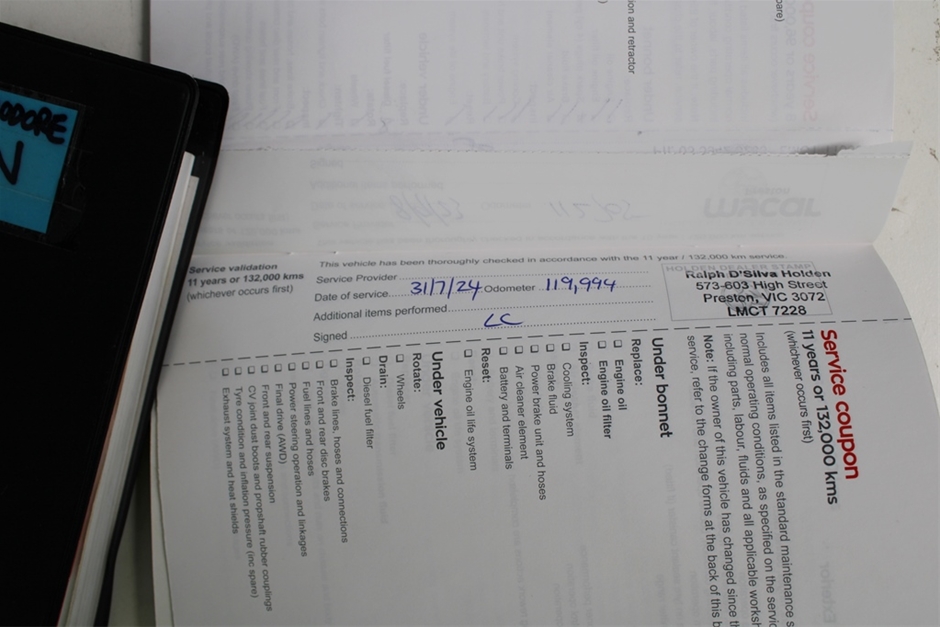 ODORE
N
ion and retractor
pare)
Service validation
11 years or 132,000 kms
(whichever occurs first)
This vehicle has been thoroughly checked in accordance with the 11 year / 132,000 km service.
Service Provider
Date of service 31/7/24 Odometer 119,994
Additional items performed
Signed LC
HOLDEN DEALER STAMP
Ralph D'Silva Holden
573-603 High Street
Preston, VIC 3072
LMCT 7228
Service coupon
11 years or 132,000 kms
(whichever occurs first)
Includes all items listed in the standard maintenance s
normal operating conditions, as specified on the servic
including parts, labour, fluids and all applicable worksh
Note: If the owner of this vehicle has changed since th
service, refer to the change forms at the back of this b
Under bonnet
Replace:
❑ Engine oil
❑ Engine oil filter
Inspect:
❑ Cooling system
❑ Brake fluid
❑ Power brake unit and hoses
❑ Air cleaner element
❑ Battery and terminals
Reset:
❑ Engine oil life system
Under vehicle
Rotate:
❑ Wheels
Drain:
❑ Diesel fuel filter
Inspect:
❑ Brake lines, hoses and connections
❑ Front and rear disc brakes
❑ Fuel lines and hoses
❑ Power steering operation and linkages
❑ Final drive (AWD)
❑ Front and rear suspension
❑ CV joint dust boots and propshaft rubber couplings
❑ Tyre condition and inflation pressure (inc spare)
❑ Exhaust system and heat shields